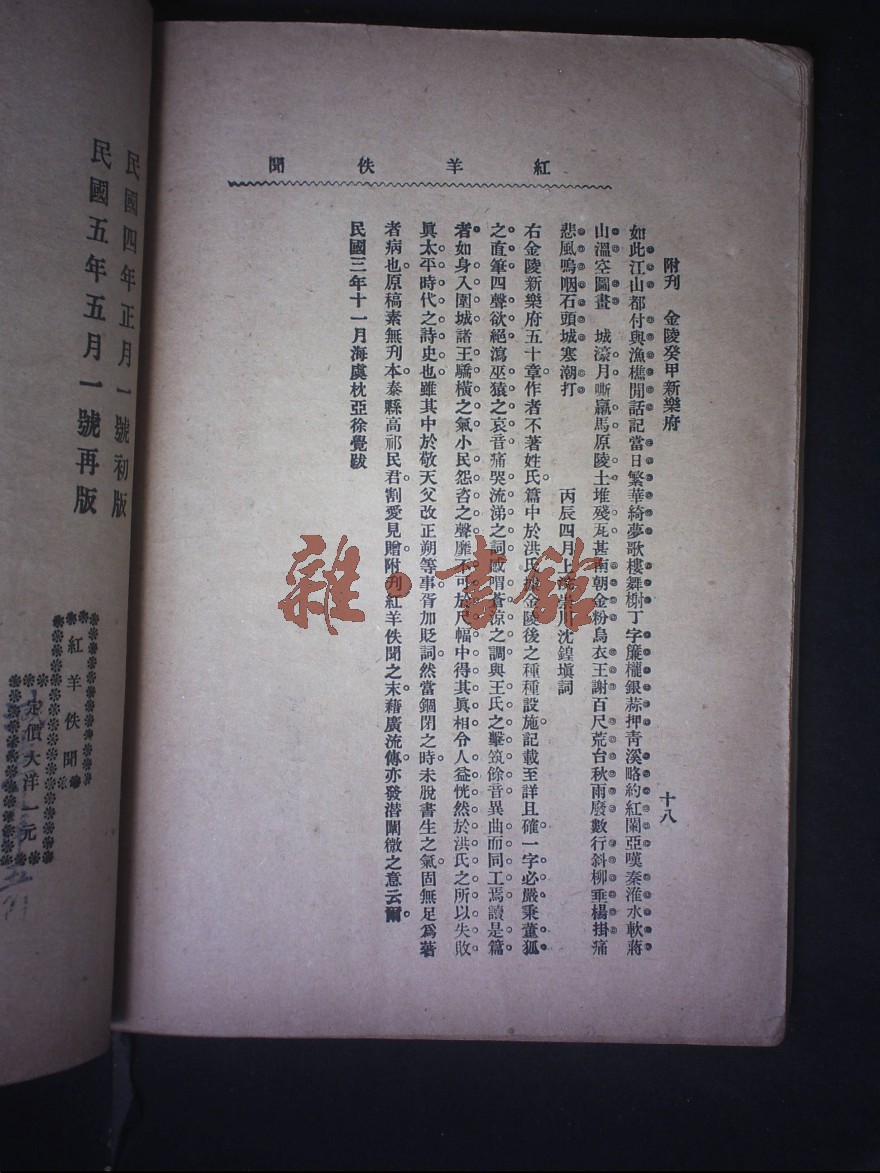 紅羊佚聞
附刋　金陵癸甲新樂府
十八
如此江山都付與漁樵閒話記當日繁華綺夢歌樓舞榭丁字簾櫳銀蒜押靑溪略約紅闌亞嘆秦淮水軟蔣
山溫空圖畫　城濠月嘶羸馬原陵土堆殘瓦甚南朝金粉烏衣王謝百尺荒台秋雨廢數行斜柳垂楊掛痛
悲風嗚咽石頭城寒潮打　　丙辰四月上川沈鍠塡詞
右金陵新樂府五十章作者不著姓氏篇中於洪氏據金陵後之種種設施記載至詳且確一字必嚴秉董狐
之直筆四聲欲絕瀉巫猿之哀音痛哭流涕之詞感喟蒼涼之調與王氏之擊筑餘音異曲而同工焉讀是篇
者如身入圍城諸王驕橫之氣小民怨咨之聲靡不可於尺幅中得其眞相令人益恍然於洪氏之所以失敗
眞太平時代之詩史也雖其中於敬天父改正朔等事胥加貶詞然當錮閉之時未脫書生之氣固無足爲著
者病也原稿素無刋本泰縣高祁民君割愛見贈附刋紅羊佚聞之末藉廣流傳亦發潛闡微之意云爾
民國三年十一月海虞枕亞徐覺跋
民國四年正月一號初版
民國五年五月一號再版
紅羊佚聞
定價大洋一元
雜·書館